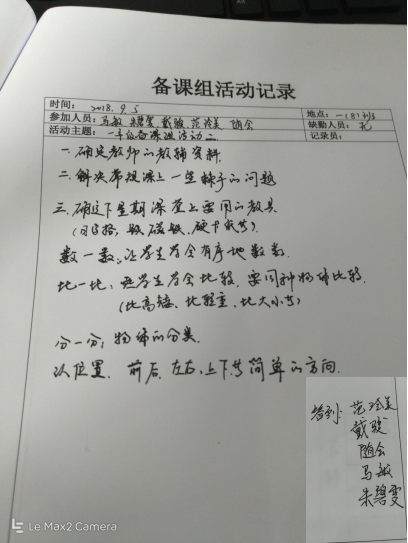 备课组活动记录
时间: 2018.9.5
地点: 一(8)班
参加人员: 马敏 朱碧雯 戴骏 范冷美 随会
缺勤人员: 无
活动主题: 一年级备课组活动二
记录员:
一. 确定教师的教辅资料.
二. 解决常规课上一些棘手的问题
三. 确定下星期课堂上要用的教具
数一数: 让学生学会有序地数数.
比一比: 要学生学会比较, 要同种物体比较.
(比高矮、比轻重、比大小等)
分一分: 物体的分类.
认位置. 前后、左右、上下等简单的方向.
签到: 范冷美
戴骏
随会
马敏
朱碧雯
Le Max2 Camera